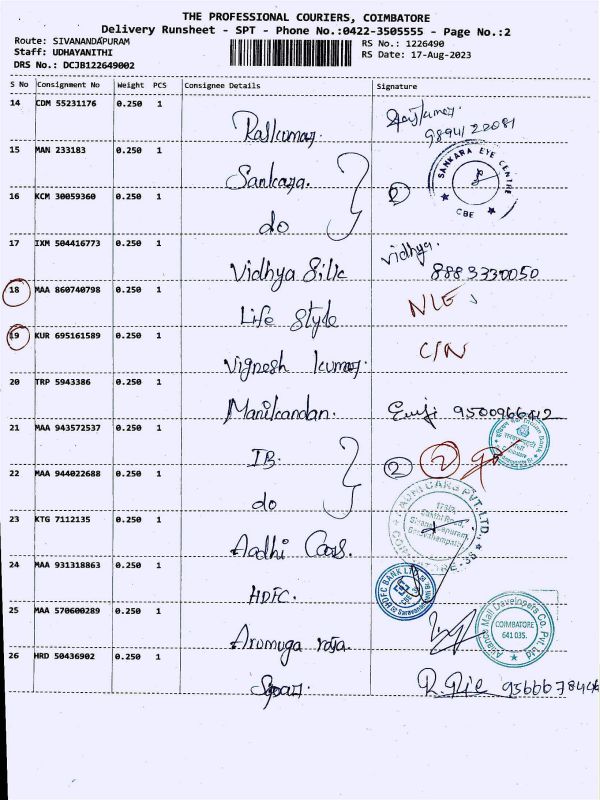 THE PROFESSIONAL COURIERS, COIMBATORE
Delivery Runsheet - SPT - Phone No.:0422-3505555 - Page No.:2
Route: SIVANANDAPURAM
RS No.: 1226490
Staff: UDHAYANITHI
RS Date: 17-Aug-2023
DRS No.: DCJB122649002
S No Consignment No Weight PCS Consignee Details Signature
14 CDM 55231176 0.250 1
Rajkumar
9894122081
15 MAN 233183 0.250 1
Sankara.
SANKARA EYE CENTRE
CBE
2
16 KCM 30059360 0.250 1
do
17 IXM 504416773 0.250 1
Vidhya Silk
Vidhya.
8883330050
18 MAA 860740798 0.250 1
Life Style
NLE
19 KUR 695161589 0.250 1
Vignesh kumar.
C/N
20 TRP 5943386 0.250 1
Manikandan.
9500966412
21 MAA 943572537 0.250 1
IB.
Indian Bank
2
2
22 MAA 944022688 0.250 1
do
23 KTG 7112135 0.250 1
Aadhi Cars.
AADHI CARS PVT. LTD.
24 MAA 931318863 0.250 1
HDFC.
HDFC BANK LTD
CBE
25 MAA 570600289 0.250 1
Aromuga raja
Alliance Mall Developers Co. Pvt. Ltd
COIMBATORE
641 035.
26 HRD 50436902 0.250 1